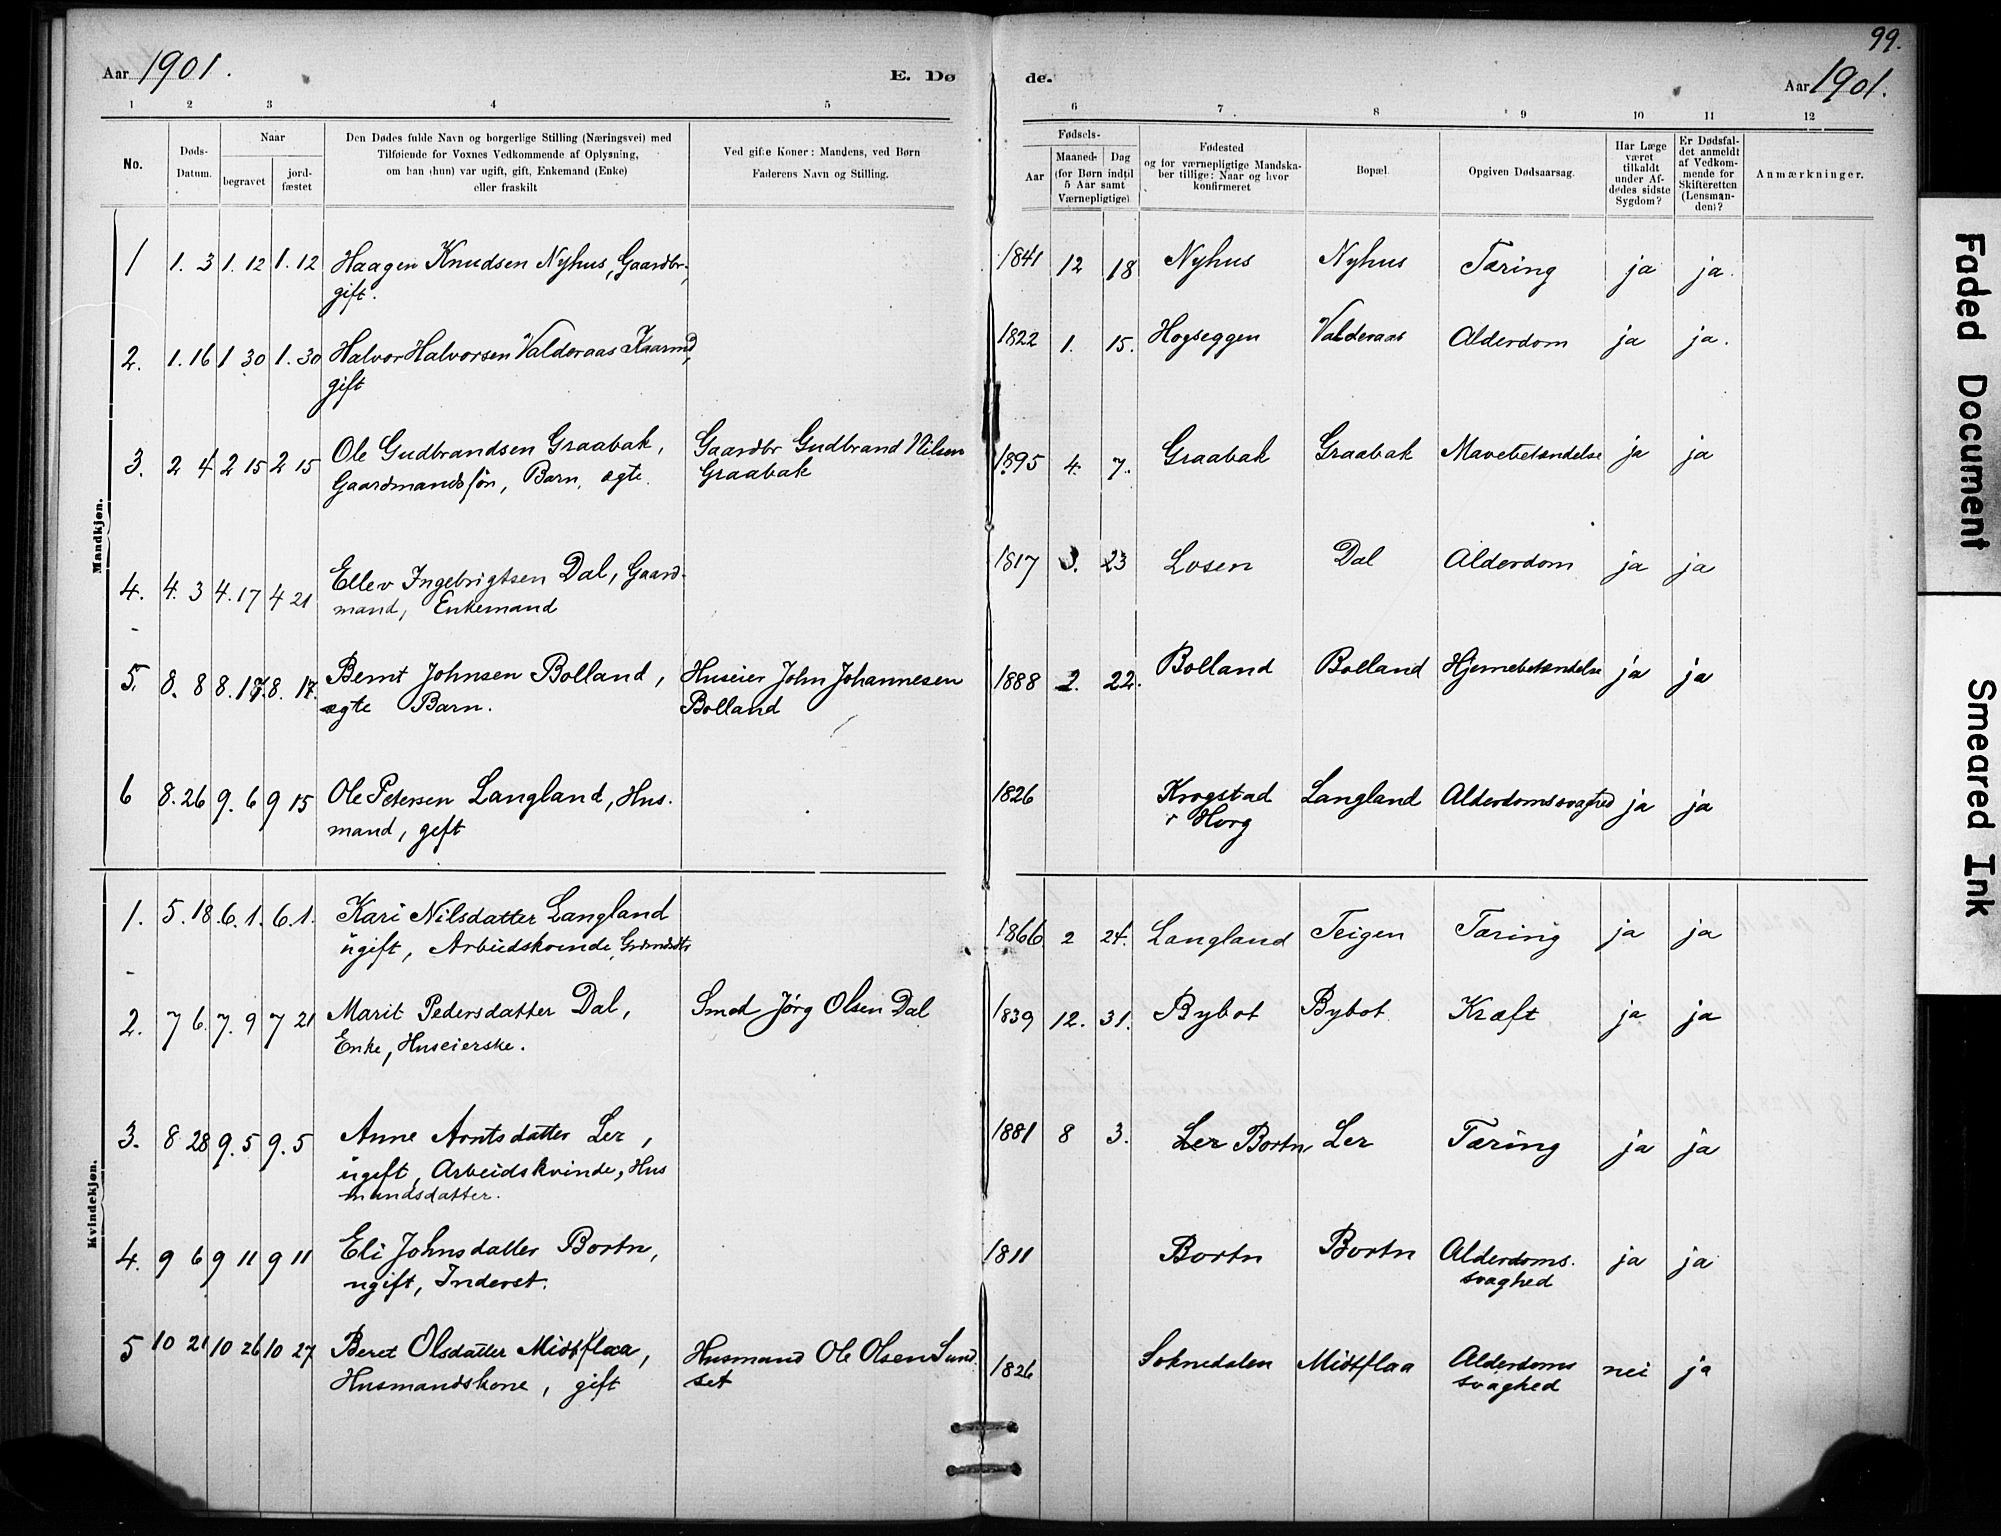 99.
Aar 1901. E. Dø de. Aar 1901.
1 2 3 4 5 6 7 8 9 10 11 12
No.
Døds-
Datum.
Naar
begravet
jord-
fæstet
Den Dødes fulde Navn og borgerlige Stilling (Næringsvei) med
Tilføiende for Voxnes Vedkommende af Oplysning,
om han (hun) var ugift, gift, Enkemand (Enke)
eller fraskilt
Ved gifte Koner: Mandens, ved Børn
Faderens Navn og Stilling.
Fødsels-
Aar
Maaned- Dag
(for Børn indtil
5 Aar samt
Værnepligtige)
Fødested
og for værnepligtige Mandska-
ber tillige: Naar og hvor
konfirmeret
Bopæl.
Opgiven Dødsaarsag.
Har Læge
været
tilkaldt
under Af-
dødes sidste
Sygdom?
Er Dødsfal-
det anmeldt
af Vedkom-
mende for
Skifteretten
(Lensman-
den)?
Anmærkninger.
Mandkjøn.
1 1. 3 1. 12 1. 12 Haagen Knudsen Nyhus, Gaardbr., 1841 12 18 Nyhus Nyhus Tæring ja ja.
gift.
2. 1. 16 1 30 1. 30 Halvor Halvorsen Valderaas Kaarmd, 1822 1. 15. Hogseggen Valderaas Alderdom ja ja.
gift
3. 2 4 2 15 2 15 Ole Gudbrandsen Graabak, Gaardbr Gudbrand Nilsen 1895 4. 7. Graabak Graabak Mavebetændelse ja ja
Gaardmandssøn, Barn, ægte. Graabak
4. 4. 3 4. 17 4 21 Ellev Ingebrigtsen Dal, Gaard- 1817 3. 23 Losen Dal Alderdom ja ja
mand, Enkemand
5. 8. 8 8. 17. 8. 17. Bernt Johnsen Bolland, Huseier John Johannesen 1888 2. 22. Bolland Bolland Hjernebetændelse ja ja
ægte Barn. Bolland
6 8. 26 9. 6 9 15 Ole Petersen Langland, Hus- 1826 Krogstad Langland Alderdomssvaghed ja ja
mand, gift i Horg
Kvindekjøn.
1. 5. 18. 6. 1. 6. 1. Kari Nilsdatter Langland 1866 2 24. Langland Teigen Tæring ja ja
ugift, Arbeidskvinde,
2. 7 6. 7. 9 7 21 Marit Pedersdatter Dal, Smed Jørg Olsen Dal 1839 12. 31. Bybot Bybot Kræft ja ja
Enke, Huseierske.
3. 8 28 9. 5 9. 5 Anne Arntsdatter Ler, 1881 8 3. Ler Bortn Ler Tæring ja ja
ugift, Arbeidskvinde, Hus
mandsdatter.
4. 9 6 9 11 9 11 Eli Johnsdatter Bortn, 1811 Bortn Bortn Alderdoms- ja ja
ugift, Inderst. svaghed
5 10 21 10 26 10 27 Beret Olsdatter Midtflaa, Husmand Ole Olsen Sund 1826 Soknedalen Midtflaa Alderdoms nei ja
Husmandskone, gift set svaghed
Faded Document
Smeared Ink